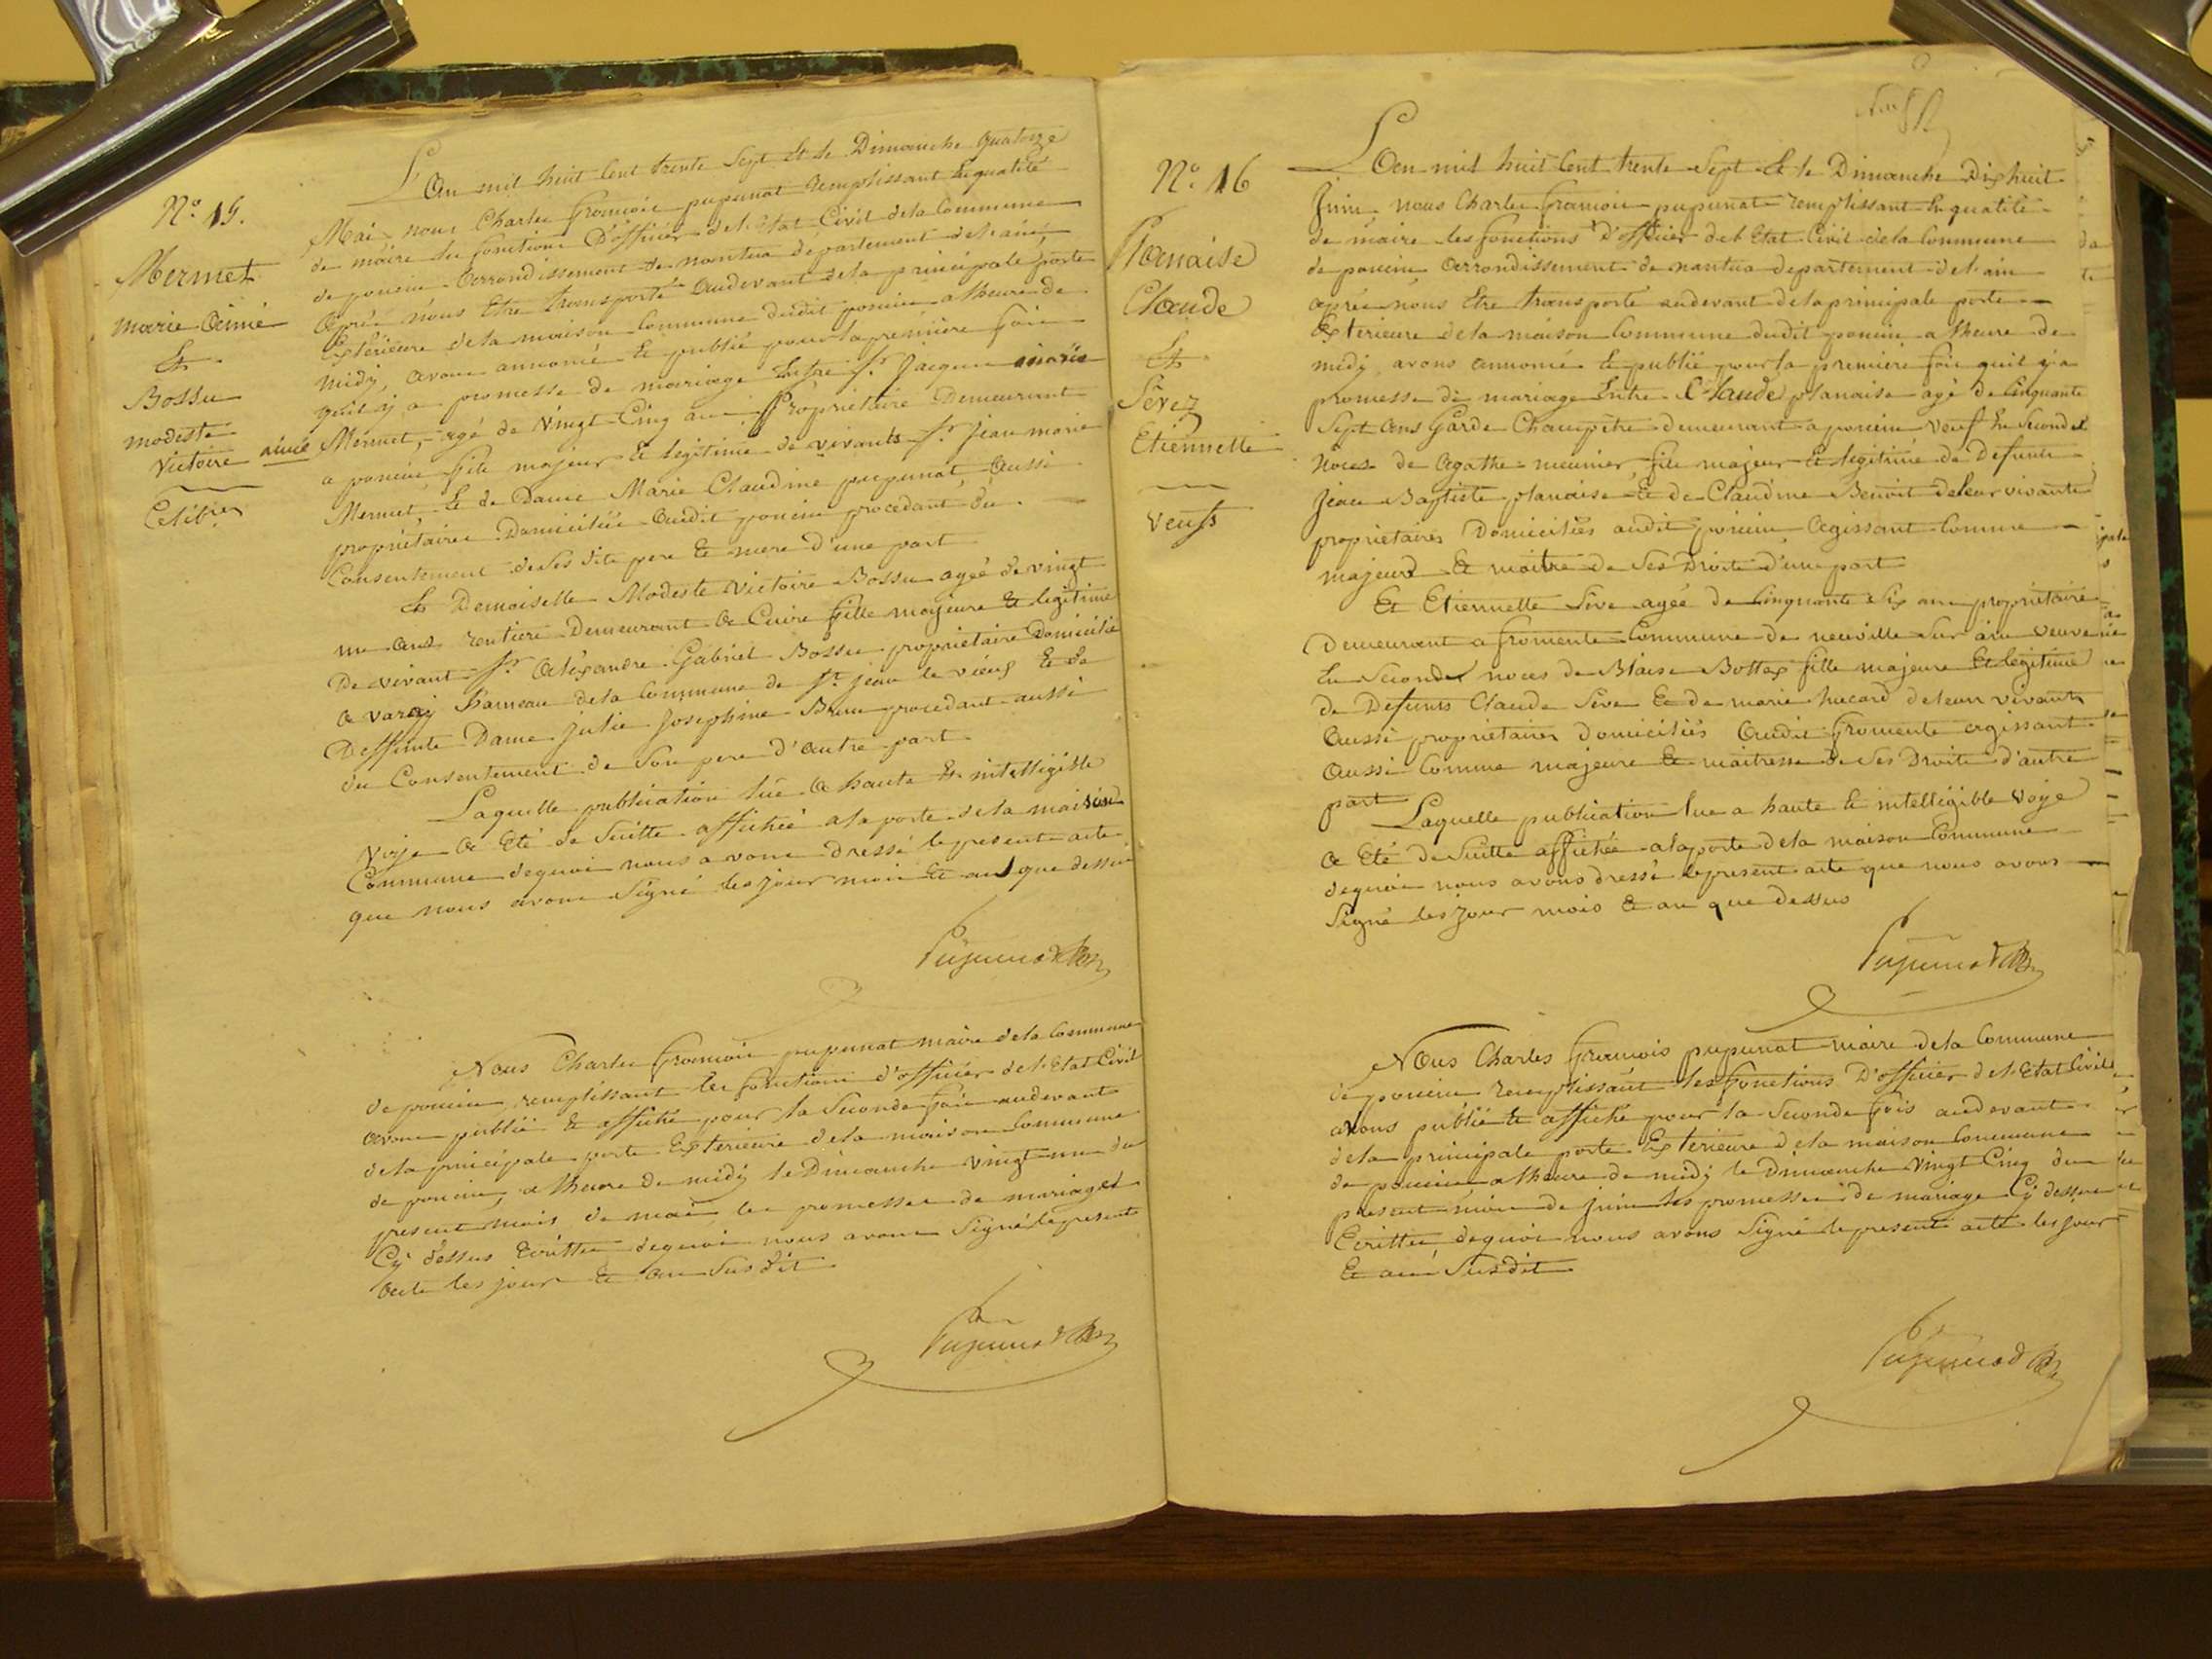 N.º 15.
Mermet
marie Aimé
Et
Bossu
modeste
Victoire
Célibres
L'An mil huit Cent trente Sept Et le Dimanche quatorze
Mai nous Charles françois pupunat Remplissant En qualité
de maire les fonctions D'officier de l'Etat Civil de la Commune
de poncin Arrondissement de nantua département de l'ain,
Après nous Etre transporté Audevant de la principale porte
Extérieure de la maison Commune dudit poncin a lheure de
midy, avons annoncé Et publié pour la première fois
quil y a promesse de mariage Entre Sr. Jacques marie
aimé Mermet, agé de Vingt Cinq ans Propriétaire Demeurant
a poncin, fils majeur Et légitime de vivants Sr. Jean marie
Mermet Et de Dame Marie Claudine pupunat, Aussi
propriétaires Domiciliés Audit poncin procédant du
Consentement de Ses dits pere Et mere D'une part
Et Demoiselle Modeste Victoire Bossu agée de vingt
un ans rentiere Demeurant a Cuire fille majeure Et legitime
De vivant Sr. Aléxandre Gabriel Bossu propriétaire Domicilié
a varay hameau de la Commune de St. jean le vieux Et de
Deffunte Dame julie Josephine Brun procedant aussi
du Consentement de Son pere d'Autre part
Laquelle publication luë a haute Et intelligible
Voye a Eté de Suitte affichée a la porte de la maison
Commune dequoi nous avons dressé le present acte
que nous avons Signé les jour mois Et an que dessus
Pupunat
Nous Charles françois pupunat maire de la Commune
de poncin, remplissant les fonctions d'officier de l'Etat Civil
avons publié Et affiché pour la Seconde fois audevant
de la principale porte Extérieure de la maison Commune
de poncin, a lheure de midy le Dimanche vingt un du
present mois de mai les promesses de mariages
Cy dessus Ecrittes dequoi nous avons Signé le present
acte les jour Et an Susdit
Pupunat
N.º 16
Planaise
Claude
Et
Sève
Etiennette
Veufs
L'An mil huit Cent trente Sept Et le Dimanche Dix huit
Juin nous Charles françois pupunat remplissant En qualité
de maire les fonctions d'officier de l'Etat Civil de la Commune
de poncin Arrondissement de nantua departement de l'ain
après nous Etre transporté audevant de la principale porte
Extérieure de la maison Commune dudit poncin a lheure de
midy avons annoncé Et publié pour la premiere fois quil y a
promesse de mariage Entre Claude planaise agé de Cinquante
Sept ans Garde Champêtre demeurant a poncin veuf En Secondes
Noces de Agathe meunier, fils majeur Et légitime de Défunts
Jean Baptiste planaise Et de Claudine Benoit de leur vivants
propriétaires Domiciliés audit poncin Agissant Comme
majeurs Et maître de Ses Droits D'une part
Et Etiennette Sève agée de Cinquante Six ans propriétaire
Demeurant a fromente Commune de neuville Sur ain veuve
En Secondes noces de Blaise Bottex fille majeure Et legitime
de Defunts Claude Sève Et de marie hucard de leur vivants
Aussi propriétaires domiciliés Audit fromente agissant
Aussi Comme majeure Et maitresse de Ses Droits d'autre
part
Laquelle publication lue a haute Et intelligible Voye
a Eté de Suitte affichée a la porte de la maison Commune
dequoi nous avons dressé le present acte que nous avons
Signé les jour mois Et an que Dessus
Pupunat
Nous Charles françois pupunat maire de la Commune
de poncin remplissant les fonctions D'officier de l'Etat Civil
avons publié Et affiché pour la Seconde fois audevant
de la principale porte Extérieure de la maison Commune
de poncin a lheure de midy le Dimanche Vingt Cinq du
présent mois de Juin les promesses de mariage Cy dessus
Ecrittes dequoi nous avons Signé le present acte les jour
Et an Susdit
Pupunat